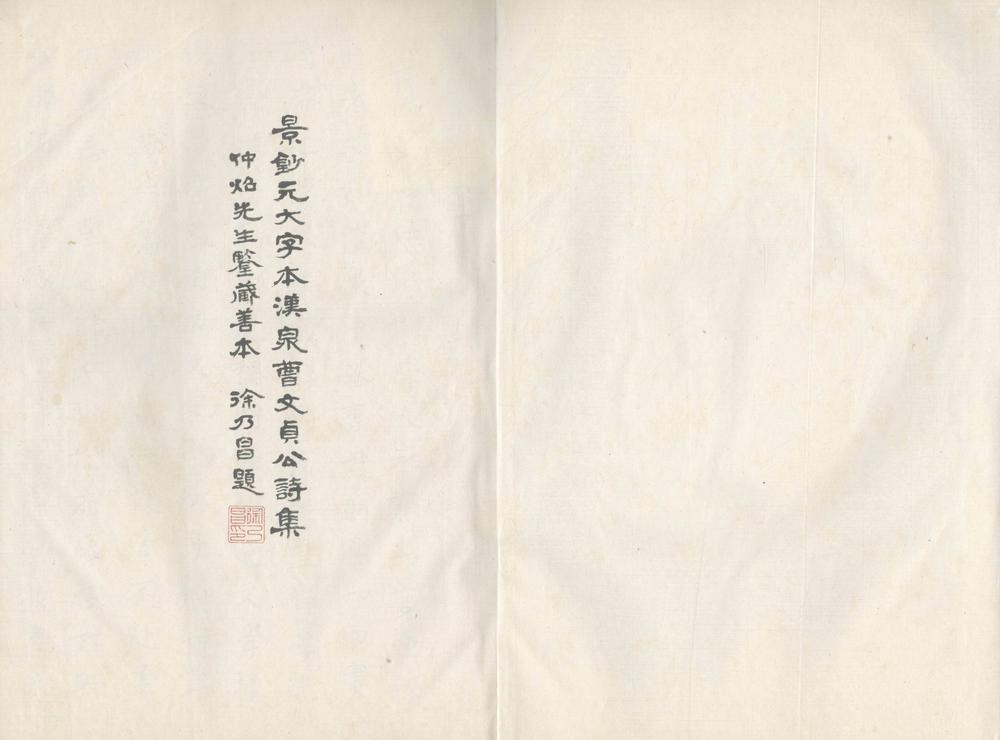 景鈔元大字本漢泉曹文貞公詩集
仲炤先生鑒藏善本 徐乃昌題
徐乃昌印